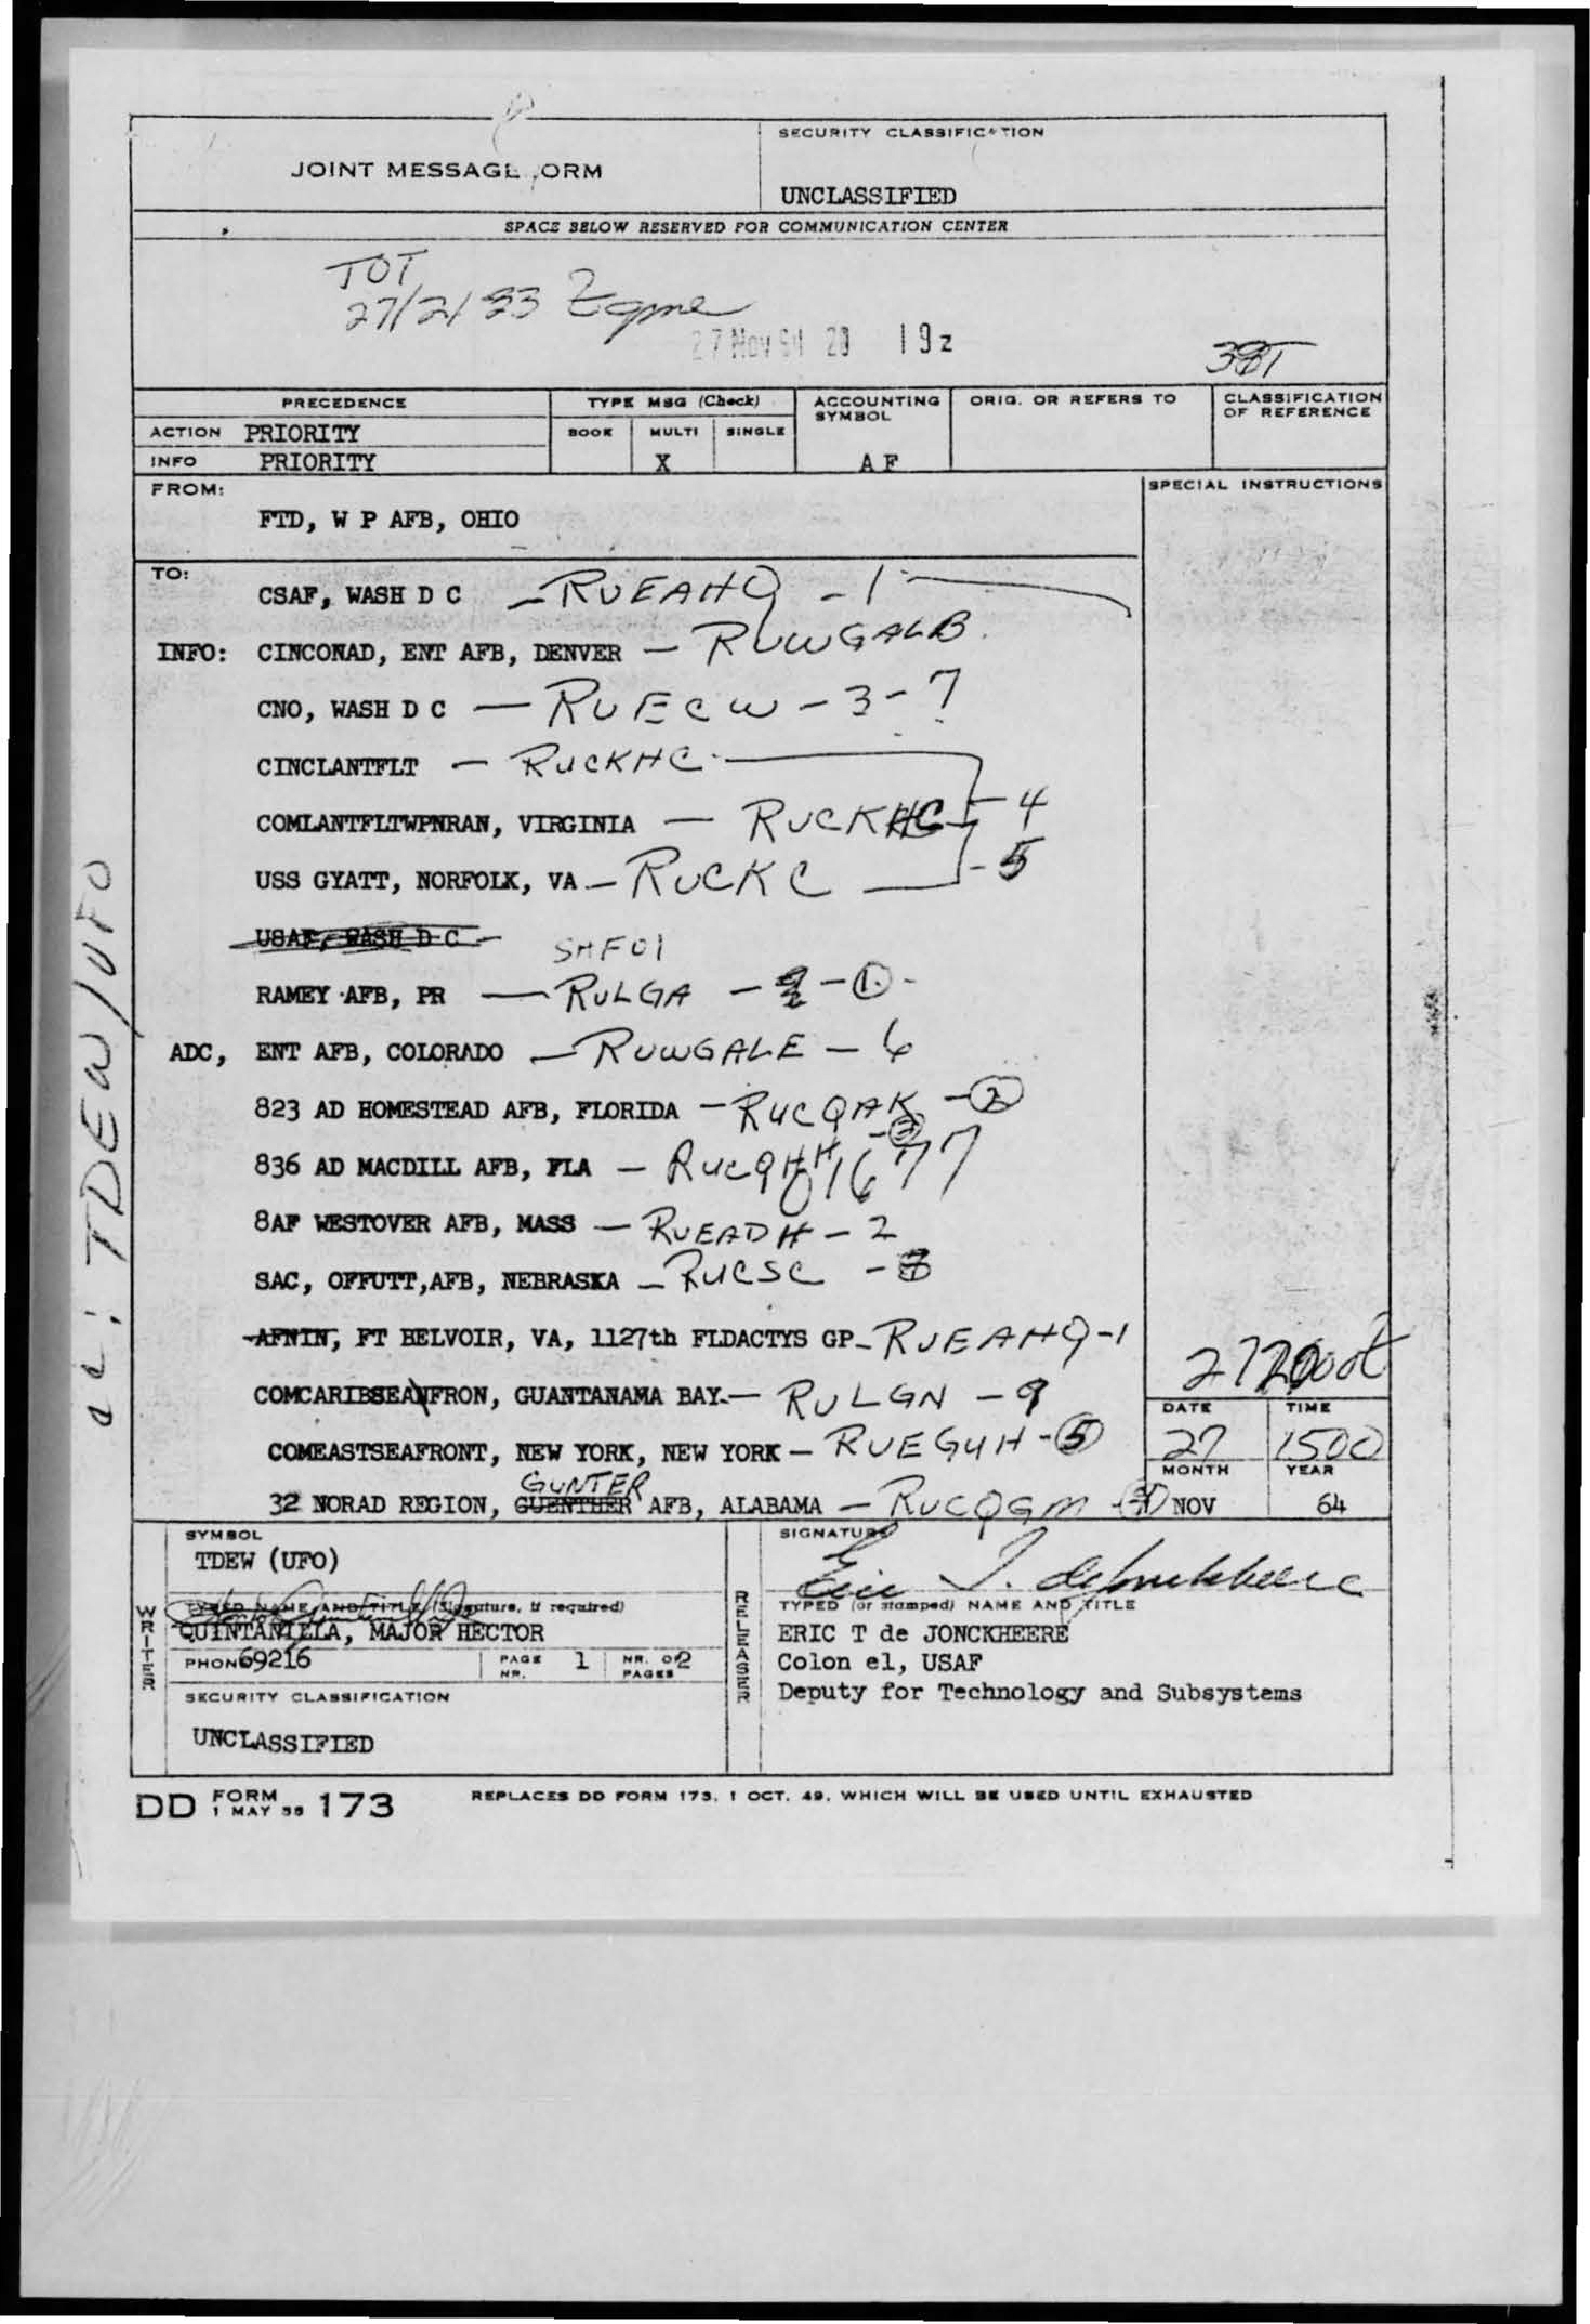 SECURITY CLASSIFICATION
JOINT MESSAGE FORM
UNCLASSIFIED
SPACE BELOW RESERVED FOR COMMUNICATION CENTER
TOT
27/2133
27 Nov 64 20 19z
PRECEDENCE TYPE MSG (Check) ACCOUNTING SYMBOL ORIG. OR REFERS TO CLASSIFICATION OF REFERENCE
ACTION PRIORITY BOOK MULTI SINGLE
INFO PRIORITY X AF
FROM: SPECIAL INSTRUCTIONS
FTD, W P AFB, OHIO
TO: CSAF, WASH D C — RUEAHQ - 1
INFO: CINCONAD, ENT AFB, DENVER — RUWGALB
CNO, WASH D C — RUECW - 3 - 7
CINCLANTFLT — RUCKHC
COMLANTFLTWPNRAN, VIRGINIA — RUCKHC - 4
USS GYATT, NORFOLK, VA — RUCKC - 5
USAF, WASH D C
SMF01
RAMEY AFB, PR — RULGA - 1
ADC, ENT AFB, COLORADO — RUWGALE - 6
823 AD HOMESTEAD AFB, FLORIDA — RUCQAK - 2
836 AD MACDILL AFB, FLA —
8AF WESTOVER AFB, MASS — RUEADH - 2
SAC, OFFUTT, AFB, NEBRASKA — RUCSC - 8
AFNIN, FT BELVOIR, VA, 1127th FLDACTYS GP - RUEAHQ - 1
COMCARIBSEAFRON, GUANTANAMA BAY. — RULGN - 9
DATE TIME
COMEASTSEAFRONT, NEW YORK, NEW YORK — RUEGUH - 5
27 1500
MONTH YEAR
GUNTER
32 NORAD REGION, GUENTHER AFB, ALABAMA — RUCQGM
NOV 64
cc: TDEW/UFO
SYMBOL
TDEW (UFO)
WRITER
TYPED NAME AND TITLE (Signature, if required)
QUINTANILLA, MAJOR HECTOR
PHONE 69216 PAGE NR. 1 NR. OF PAGES 2
SECURITY CLASSIFICATION
UNCLASSIFIED
RELEASER
SIGNATURE
Eric T. de Jonckheere
TYPED (or stamped) NAME AND TITLE
ERIC T de JONCKHEERE
Colon el, USAF
Deputy for Technology and Subsystems
DD FORM 1 MAY 55 173 REPLACES DD FORM 173, 1 OCT. 49, WHICH WILL BE USED UNTIL EXHAUSTED